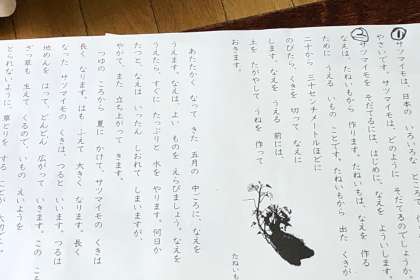 ①サツマイモは、日本の いろいろな とこ
やさいです。サツマイモは、どのように そだてるのでしょう
②サツマイモを そだてるには、はじめに なえを よういします。
なえは、たねいもから 作ります。たねいもは、なえを 作る
ために うえる いもの ことです。たねいもから 出た くきが
二十から 三十センチメートルほどに
のびたら、くきを 切って なえに
します。なえを うえる 前には、
土を たがやして、うねを 作って
おきます。
たねいも
あたたかく なって きた 五月の 中ごろに、なえを
うえます。なえは、よい ものを えらびましょう。なえを
うえたら、すぐに たっぷりと 水を やります。何日か
たつと、なえは いったん しおれて しまいますが、
やがて、また 立ち上がって きます。
つゆの ころから 夏に かけて、サツマイモの くきは
長く なります。はも ふえて 大きく なります。長く
なった サツマイモの くきは、つると いいます。つるは
地めんを はって、どんどん 広がって いきます。この こ
ざっ草も 生えて くるので、いもの えいようを
とられないように、草とりを する ことが 大切